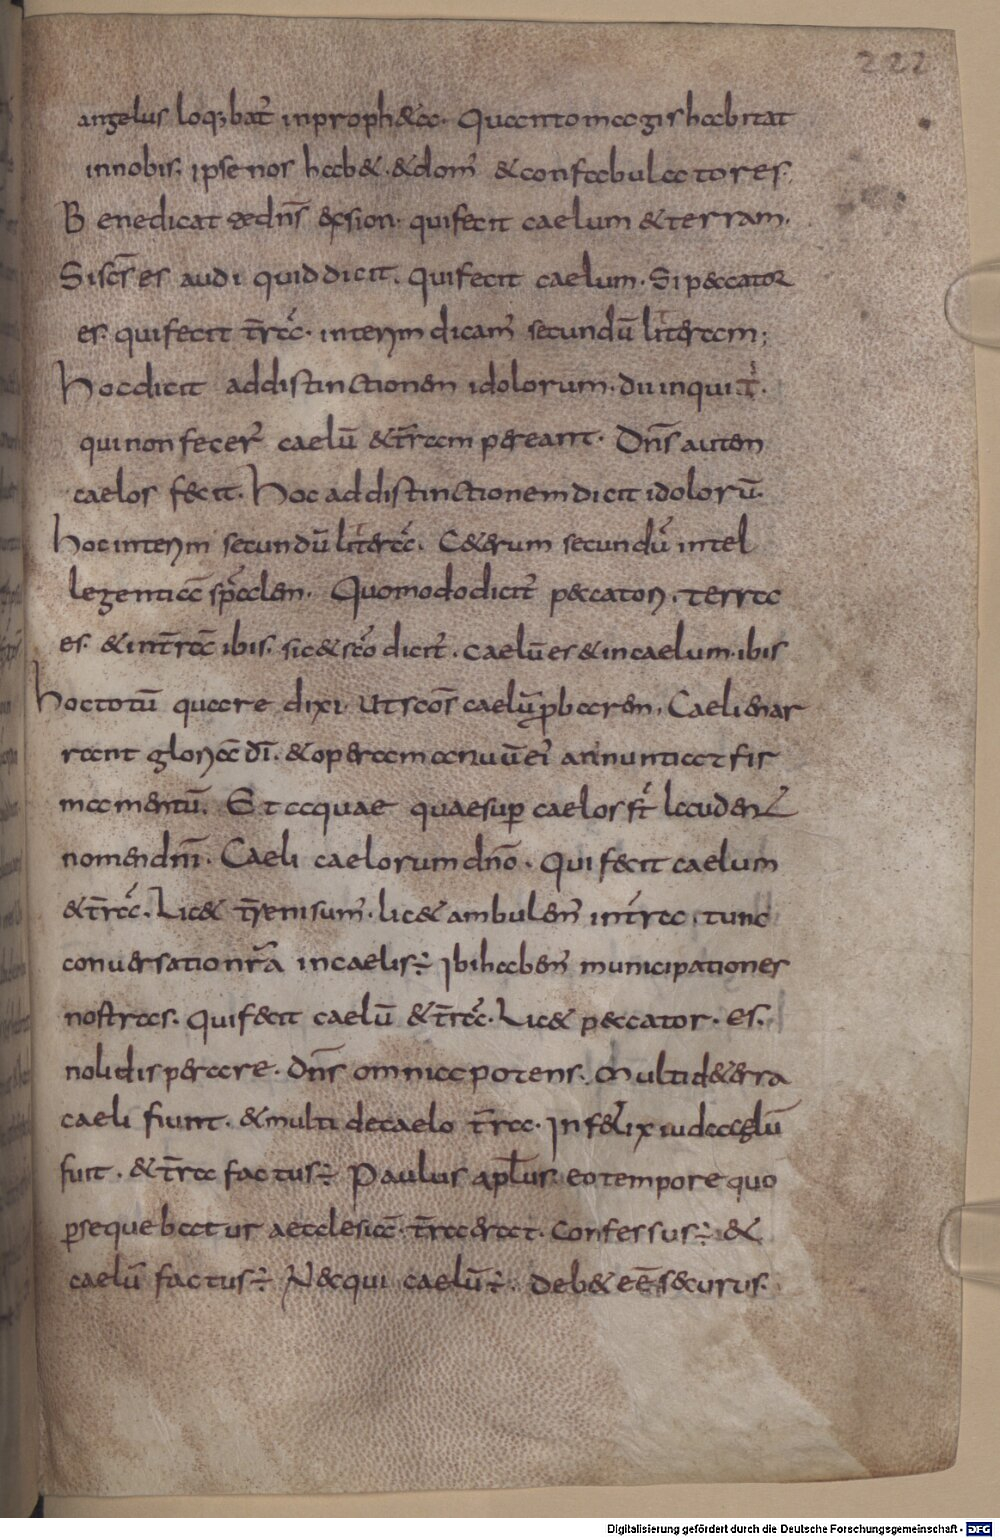 222
angelus loq;bat̄ inproph&a. Quantomagis habitat
innobis. ipsenos hab&. &dom̄ &confabulatores.
Benedicat te dn̄s exsion. quifecit caelum &terram.
Siscs̄ es audi quiddicit. quifecit caelum. Sipeccator
es. quifecit t̄rā. interim dicam̄ secundū litteram;
hocdicit addistinctionem idolorum. dii inquit.
quinonfecer̄ caelū &t̄ram pereant. Dn̄s autem
caelos fecit. hoc addistinctionem dicit idolorū.
hocinterim secundū litterā. C&erum secundū intel
legentiā sp̄alem. Quomododicit̄ peccatori. terra
es. &int̄rā ibis. sic& sc̄o dicit̄. caelū es &incaelum. ibis
hoctotū quare dixi. utscōs caelū ꝑbarem. Caeli enar
rant gloriā dī. &operam anuūeī annuntiat fir
mamentū. Et aquae quaesuꝑ caelos st̄ laudent
nomendn̄i. Caeli caelorumdn̄o. Qui fecit caelum
&t̄rā. Lic& t̄renisum̄. lic& ambulem̄ int̄ra. tunc
conuersation̄ra incaelis÷ Ibihabem̄ municipationes
nostras. Quifecit caelū &t̄rā. Lic& peccator. es.
nolidisperare. dn̄s omniapotens. Multide t&erra
caeli fiunt. &multi decaelo t̄ra. Infelix iudaeglū
fuit. &t̄ra factus÷ Paulus apl̄us. eotempore quo
ꝑsequebatur aecclesiā. t̄raerat. Confessus÷ &
caelū factus÷ Nec qui caelū÷. deb& eē securus.
Digitalisierung gefördert durch die Deutsche Forschungsgemeinschaft - DFG